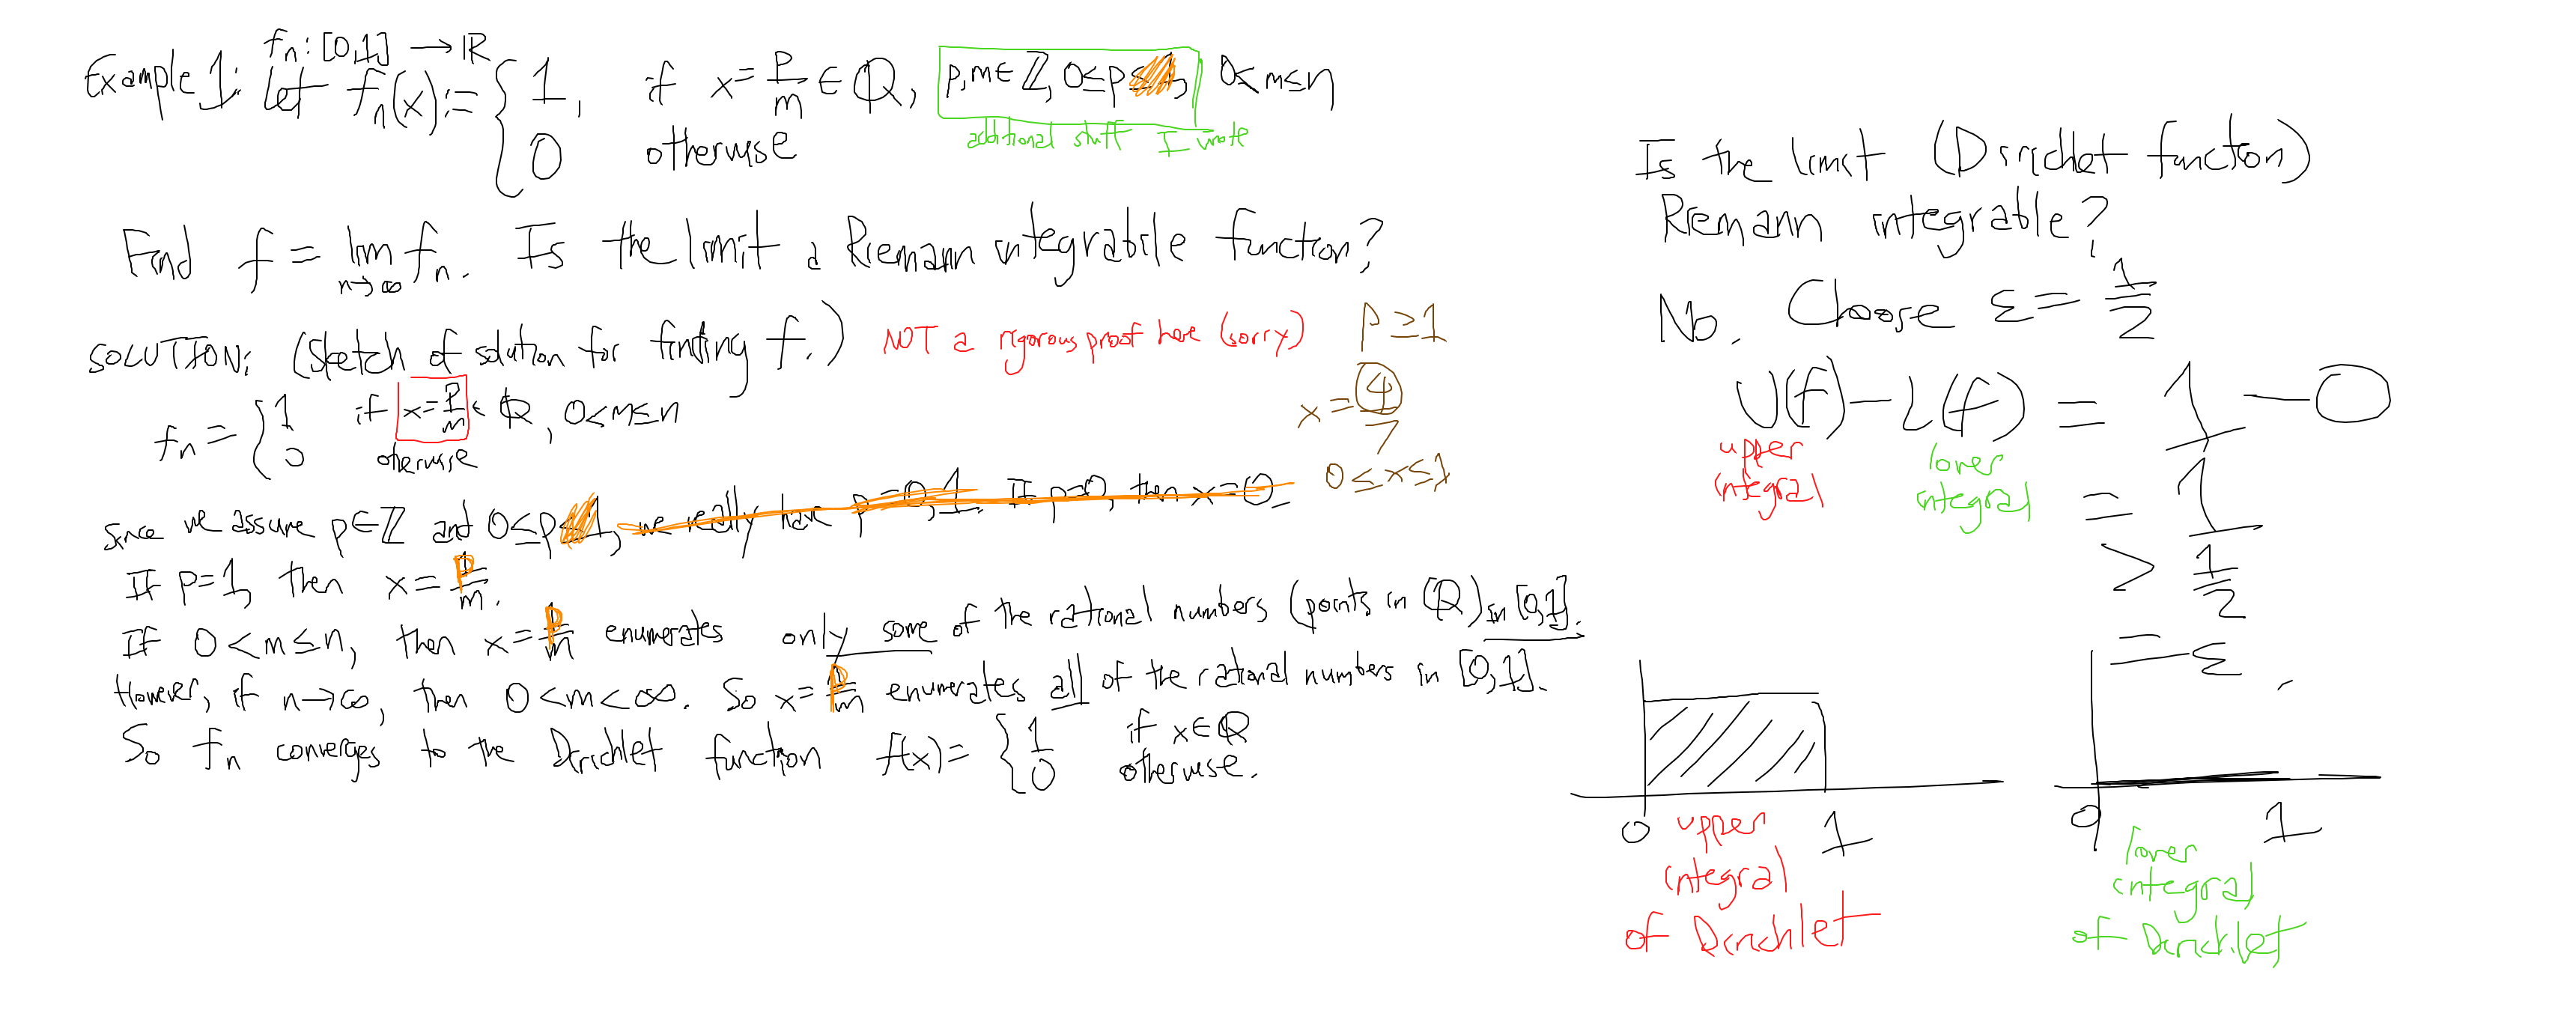 fₙ: [0,1] → ℝ
Example 1: Let fₙ(x) := { 1, if x = p/m ∈ ℚ, p, m ∈ ℤ, 0 ≤ p, 0 < m ≤ n
0 otherwise
additional stuff I wrote
Find f = lim n→∞ fₙ. Is the limit a Riemann integrabile function?
SOLUTION: (Sketch of solution for finding f.) NOT a rigorous proof here (sorry)
fₙ = { 1 if x = p/m ∈ ℚ, 0 < m ≤ n
0 otherwise
p ≥ 1
x = 4/7
0 ≤ x ≤ 1
Since we assume p ∈ ℤ and 0 ≤ p ≤ 1, we really have p = 0, 1. If p = 0, then x = 0.
If p = 1, then x = p/m.
If 0 < m ≤ n, then x = p/m enumerates only some of the rational numbers (points in ℚ) in [0,1].
However, if n → ∞, then 0 < m < ∞. So x = p/m enumerates all of the rational numbers in [0,1].
So fₙ converges to the Dirichlet function f(x) = { 1 if x ∈ ℚ
0 otherwise.
Is the limit (Dirichlet function)
Riemann integrable?
No. Choose ε = 1/2
U(f) - L(f) = 1 - 0
upper integral
lower integral
= 1
> 1/2
= ε.
0 1
upper
integral
of Dirichlet
0 1
lower
integral
of Dirichlet